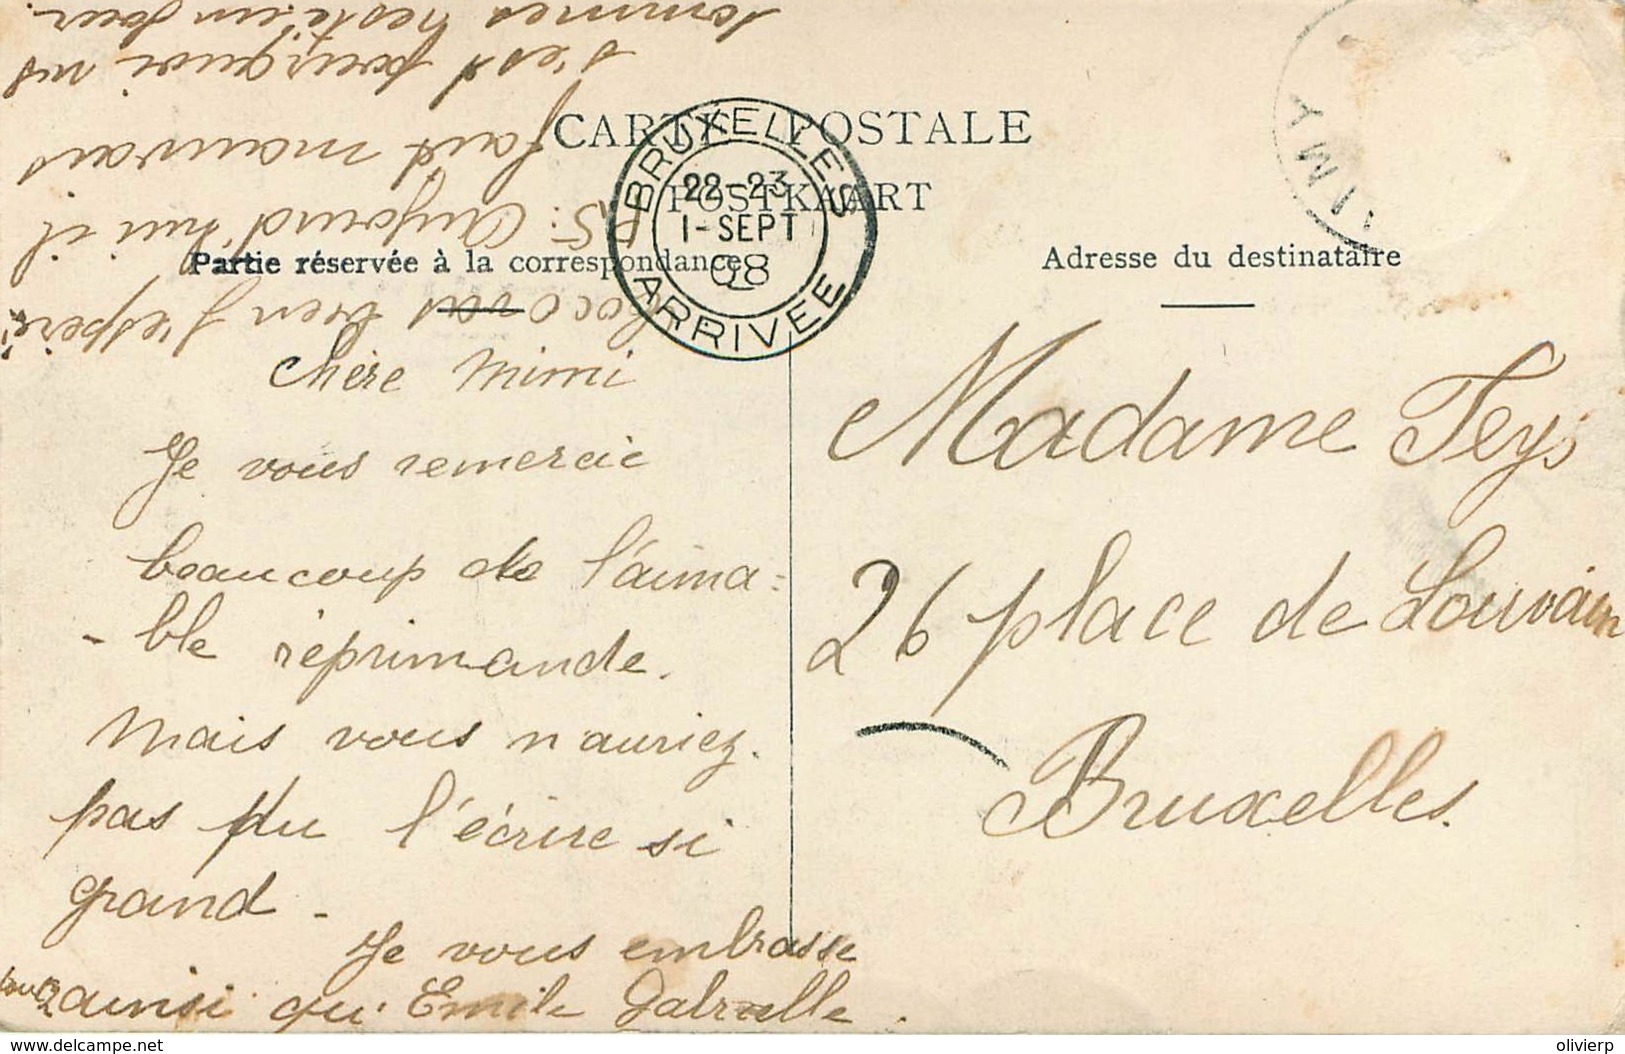 CARTE POSTALE
POSTKAART
Partie réservée à la correspondance
Adresse du destinataire
BRUXELLES
22-23
1-SEPT
08
ARRIVEE
Chère Mimi
Je vous remercie
beaucoup de l'aima=
-ble réprimande.
Mais vous n'auriez
pas pu l'écrire si
grand -
Je vous embrasse
ainsi qu'Emile
Madame Feys
26 place de Louvain
Bruxelles.
vas bien j'espère
P.S. Aujourd'hui il
fait mauvais
s'est pourquoi ns
sommes resté un jour.
delcampe.net
olivierp